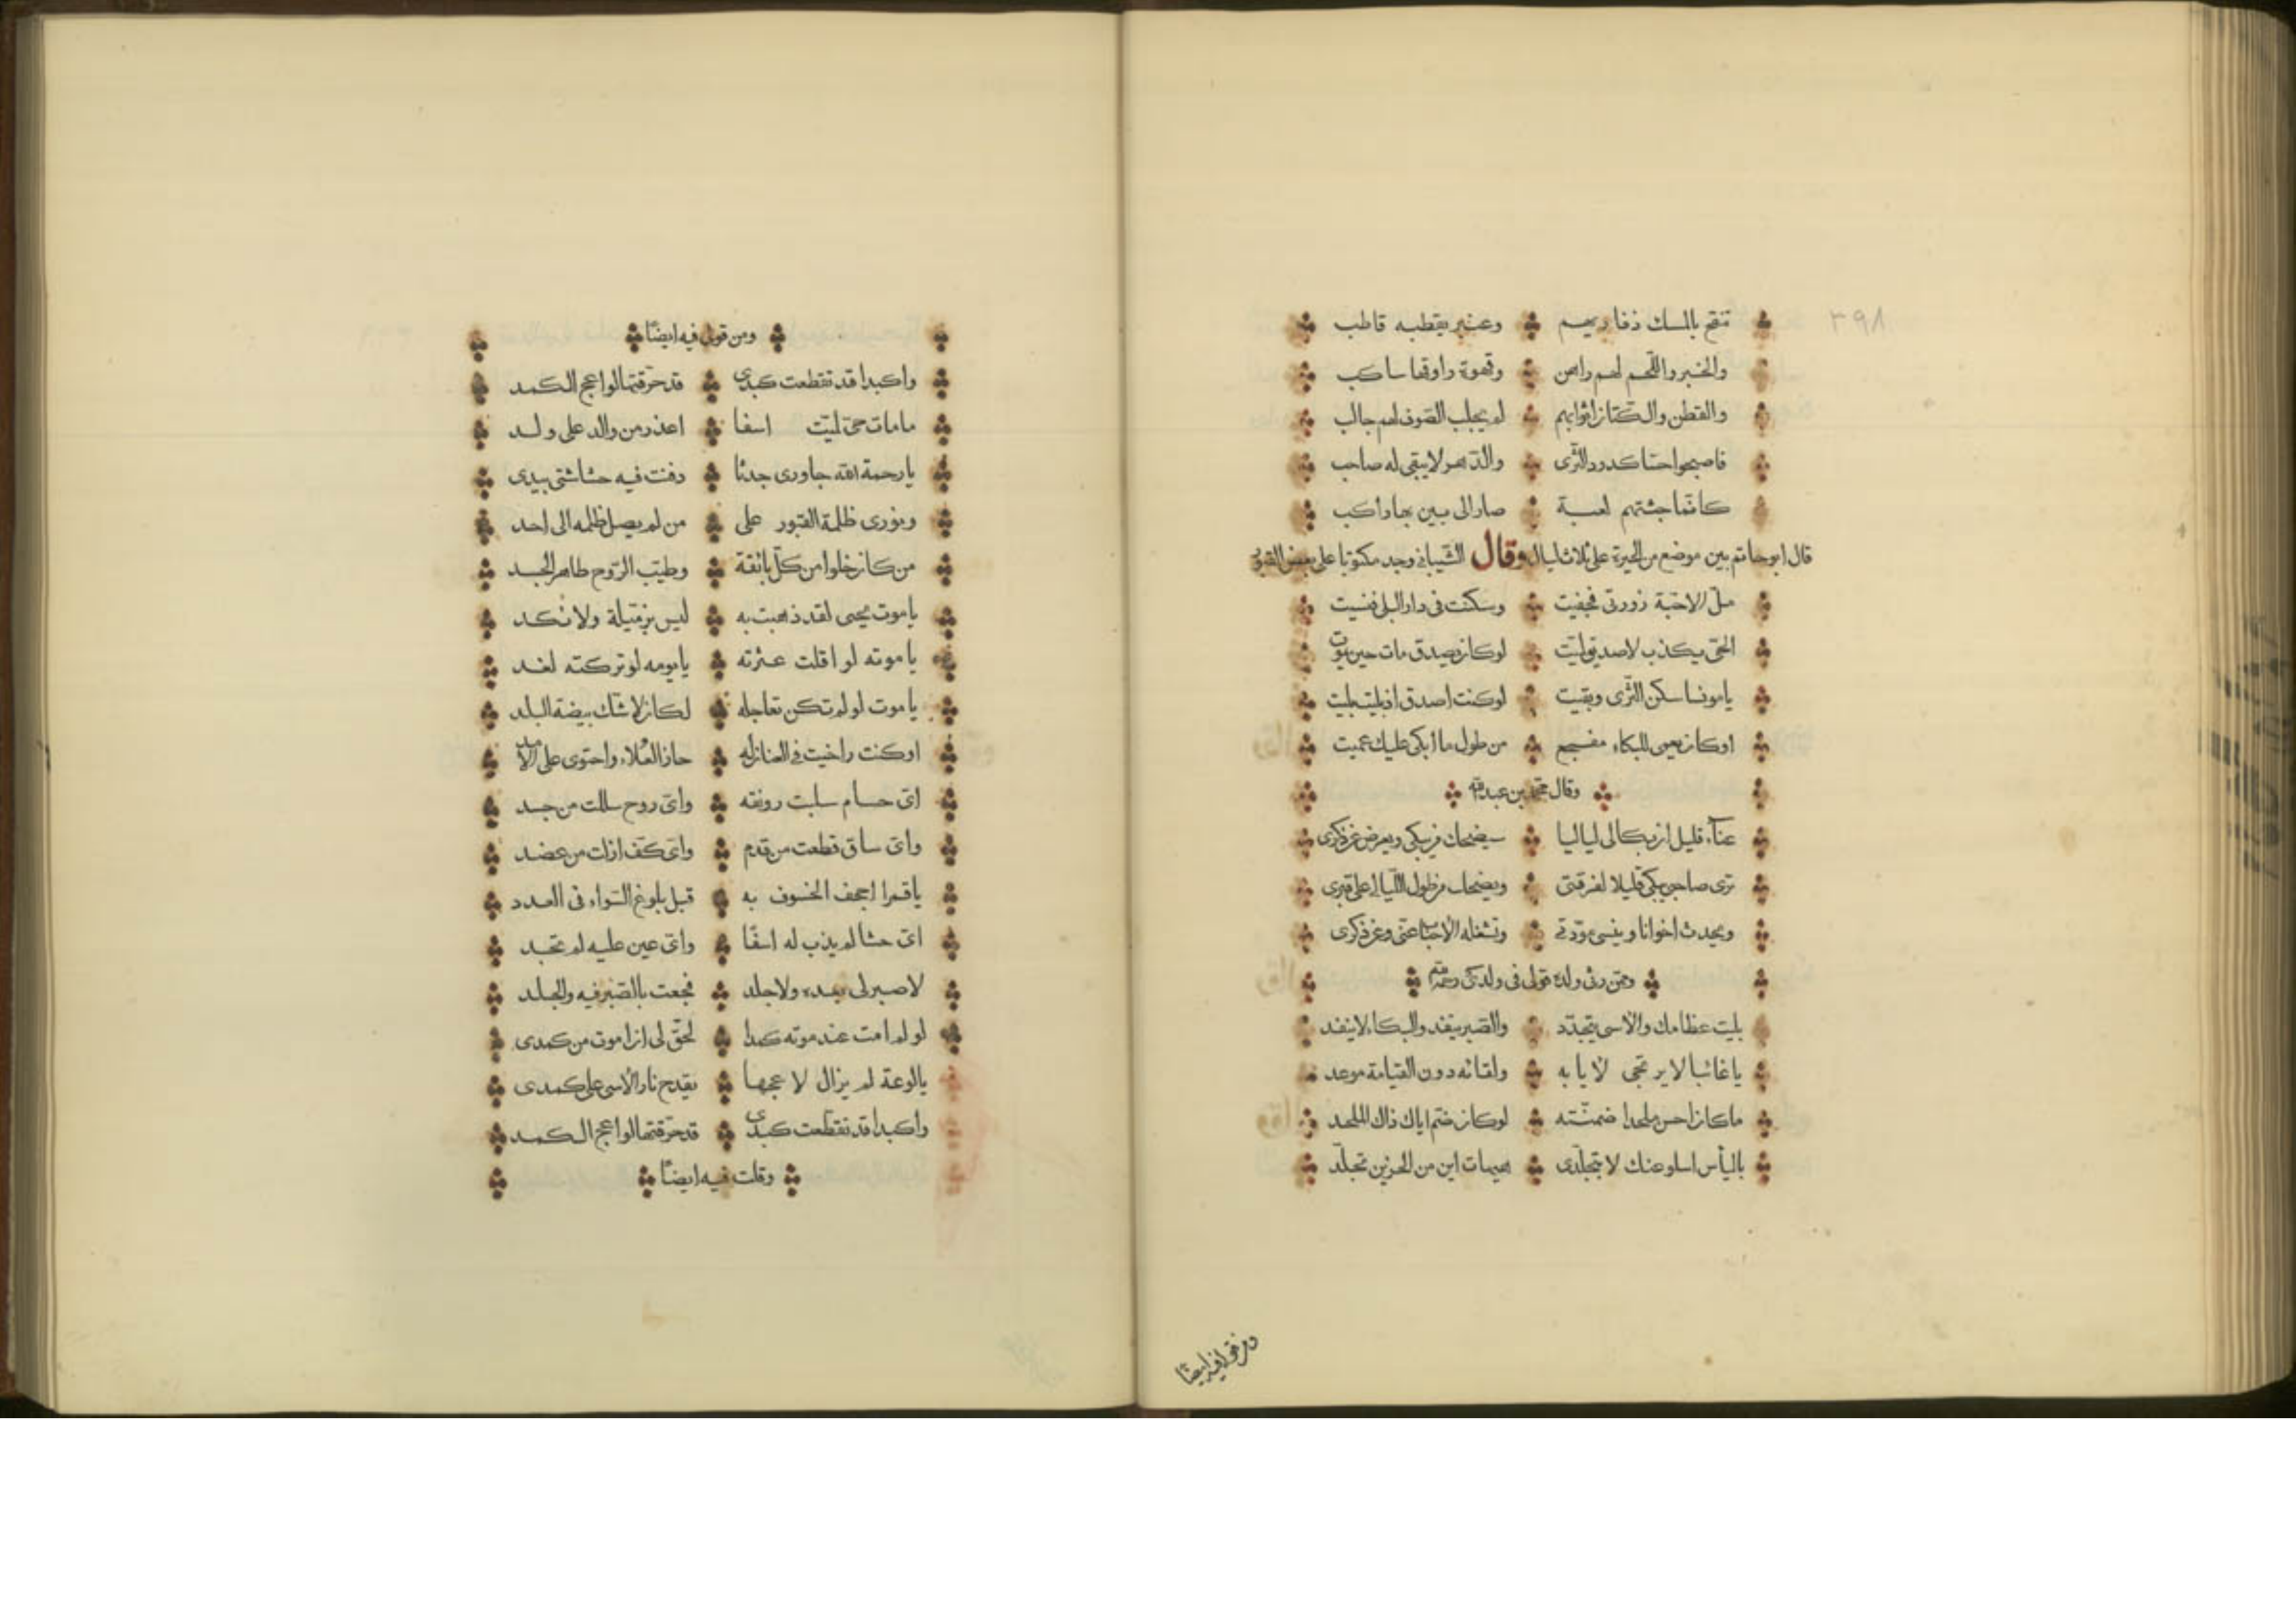 ٣٩٨
تنفح بالمسك ذفاريهم وعنبر يقطبه قاطب
والخبز واللحم لهم راهن وقهوة راوقها ساكب
والقطن والكتان اثوابهم لم يجلب الصوف لهم جالب
فاصبحوا حشا كدود الثرى والدهر لا يبقى له صاحب
كانما جثتهم لعبة صار الى بين بها راكب
قال ابو حاتم بين موضع من الحيرة على ثلاث ليال وقال الشيبانى وجد مكتوبا على بعض القبور
ملّ الاحبة زورتى فجفيت وسكنت فى دار البلى فنسيت
الحىّ يكذب لا صديق لميّت لو كان يصدق مات حين يموت
يا مونسا سكن الثّرى وبقيت لو كنت اصدق اذ بليت بليت
اوكان يعمى للبكاء مفجع من طول ما ابكى عليك عميت
وقال محمد بن عبد الله
عناء قليل ان بكا لى لياليا سيضحك من يبكى ويعرض عن ذكرى
ترى صاحبى يبكى قليلا لفرقتى ويضحك من طول الليالى على قبرى
ويحدث اخوانا وينسى مودتى وتشغله الاحباب عنى وعن ذكرى
ومن رثى ولده قولى فى ولدى رحمه الله
بليت عظامك والاسى يتجدّد والصبر ينفد والبكاء لا ينفد
يا غائبا لا يرتجى لايابه ولقائه دون القيامة موعد
ما كان احسن ملحدا ضمنّته لو كان ضم اباك ذاك الملحد
بالياس اسلو عنك لا بتجلّدى هيهات اين من الحزين تجلّد
ومن قولى فيه ايضا
ومن قولى فيه ايضًا
واكبدا قد تقطعت كبدى قد حرّقتها لواعج الكمد
ما مات حىّ لميّت اسفا اعذر من والد على ولد
يا رحمة الله جاورى جدثا دفنت فيه حشاشتى بيدى
ونورى ظلمة القبور على من لم يصل ظلمه الى احد
من كان خلوا من كلّ بائقة وطيّب الرّوح طاهر الجسد
يا موت يحيى لقد ذهبت به ليس بزمّيلة ولا نكد
يا موته لو اقلت عثرته يا يومه لو تركته لغد
يا موت لو لم تكن تعاجله لكان لا شك بيضة البلد
اوكنت راخيت فى العنان له حاز العُلاء واحتوى على الامد
اىّ حسام سلبت رونقه واىّ روح سللت من جسد
واىّ ساق قطعت من قدم واىّ كفّ ازلت من عضد
يا قمرا اجحف الخسوف به قبل بلوغ السّواء فى العدد
اىّ حشا لم يذب له اسفًا واىّ عين عليه لم تجد
لا صبر لى بعده ولا جلد فجعت بالصّبر فيه والجلد
لو لم امت عند موته كمدا لحقّ لى ان اموت من كمدى
يا لوعة لم يزال لاعجها يقدح نار الاسى على كمدى
واكبدا قد تقطّعت كبدى قد حرّقتها لواعج الكمد
وقلت فيه ايضًا